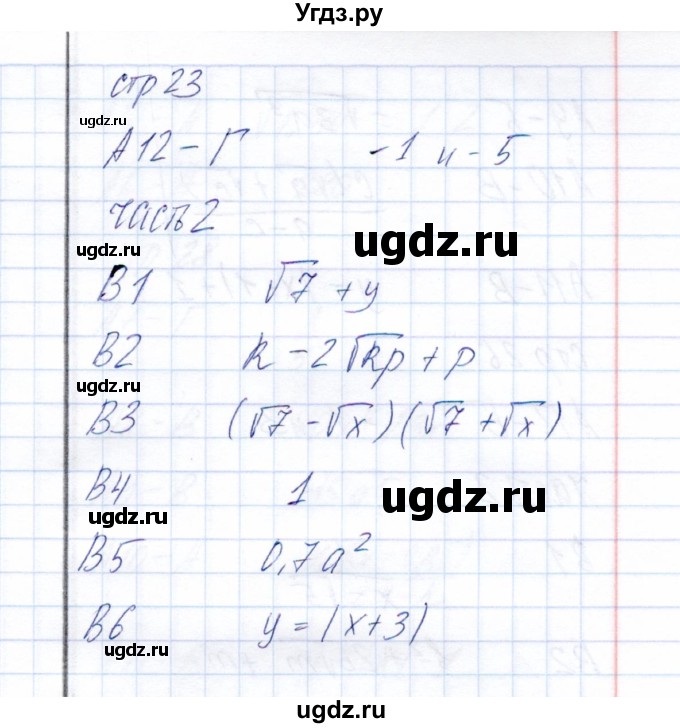 Угдз.ру
стр 23
ugdz.ru
А12 - Г -1 и -5
часть 2
ugdz.ru
ugdz.ru
В1 √7 + y
В2 k - 2√kp + p
ugdz.ru
В3 (√7 - √x)(√7 + √x)
В4 1
ugdz.ru
ugdz.ru
В5 0,7a²
В6 y = |x+3|
ugdz.ru